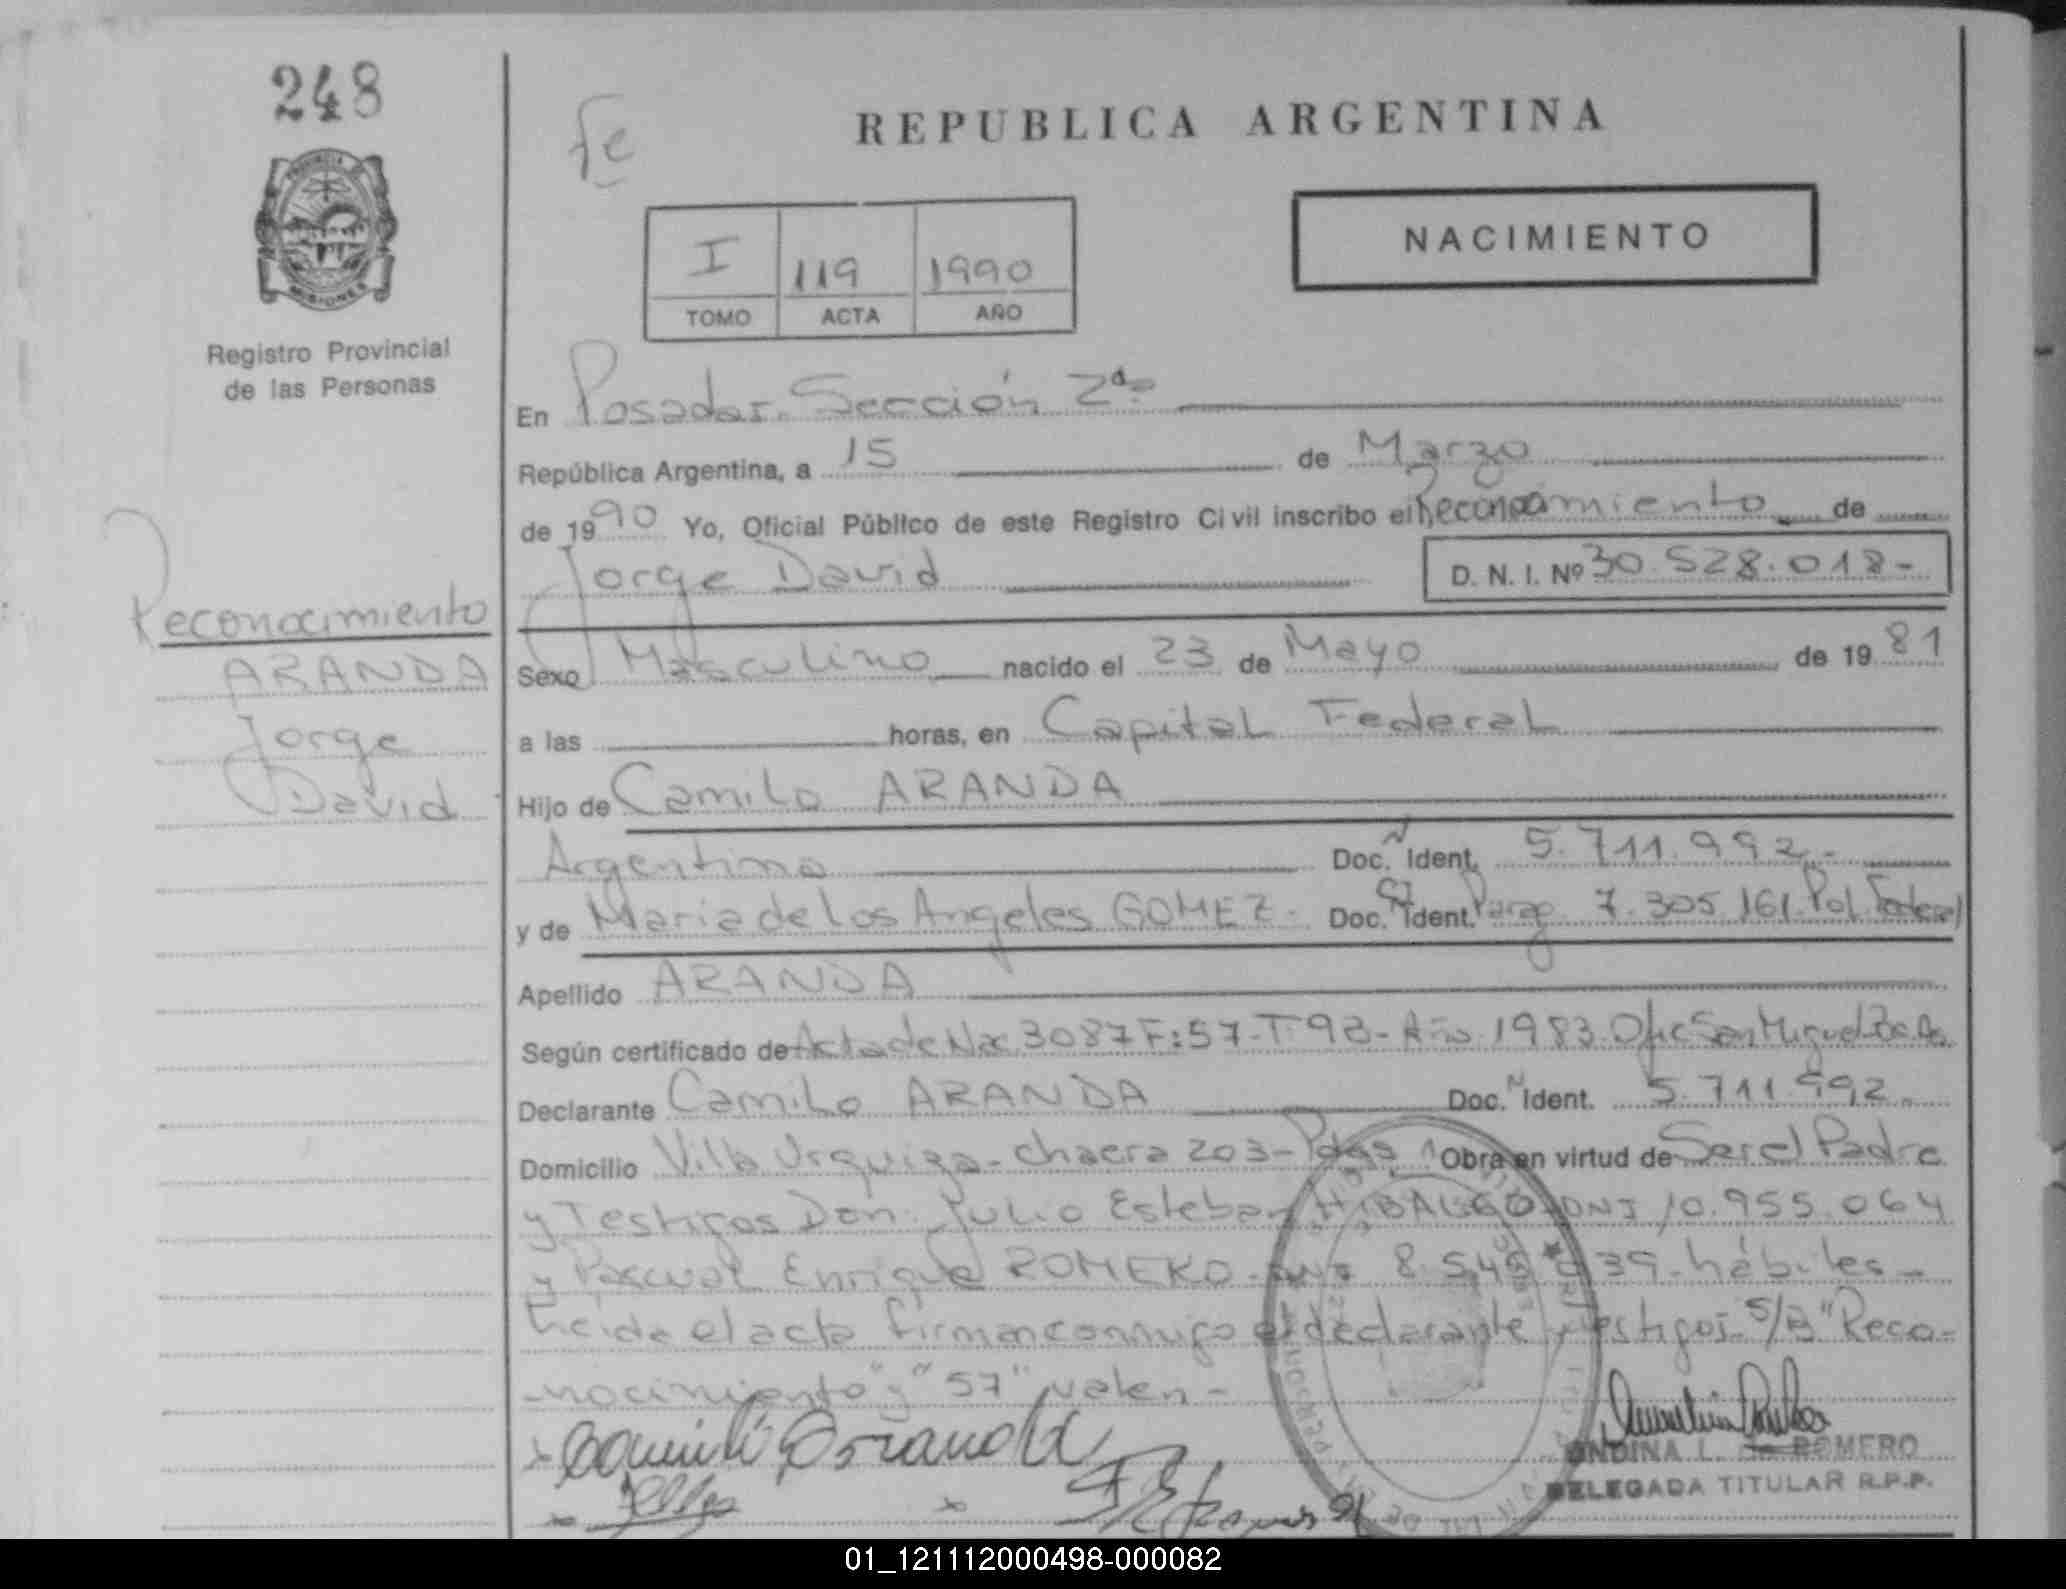 248
fe
REPUBLICA ARGENTINA
PROVINCIA DE
MISIONES
Registro Provincial
de las Personas
NACIMIENTO
I 119 1990
TOMO ACTA AÑO
En Posadas. Sección 2da
República Argentina, a 15 de Marzo
de 1990 Yo, Oficial Público de este Registro Civil inscribo el Reconocimiento de
Jorge David D. N. I. Nº 30.528.018-
Reconocimiento
ARANDA
Jorge
David
Sexo Masculino nacido el 23 de Mayo de 1981
a las horas, en Capital Federal
Hijo de Camilo ARANDA
Argentino Doc. Ident. 5.711.992.-
y de Maria de Los Angeles GOMEZ- Doc. Ident. 7.305.161. Pol. Federal
Apellido ARANDA
Según certificado de Acta de Nac 3087 F:57-T 9B- Año 1983. Ofic San Miguel Bs. As.
Declarante Camilo ARANDA Doc. Ident. 5.711.992.
Domicilio Villa Urquiza- chacra 203- Pdas Obra en virtud de Ser el Padre
y Testigos Don. Julio Esteban DNI 10.955.064
y Pascual Enrique ROMERO- 39- hábiles-
Leida el acta firman conmigo el declarante y testigos. S/B "Reco-
nocimiento" y "57" valen-
ONDINA L. de ROMERO
DELEGADA TITULAR R.P.P.
01_121112000498-000082